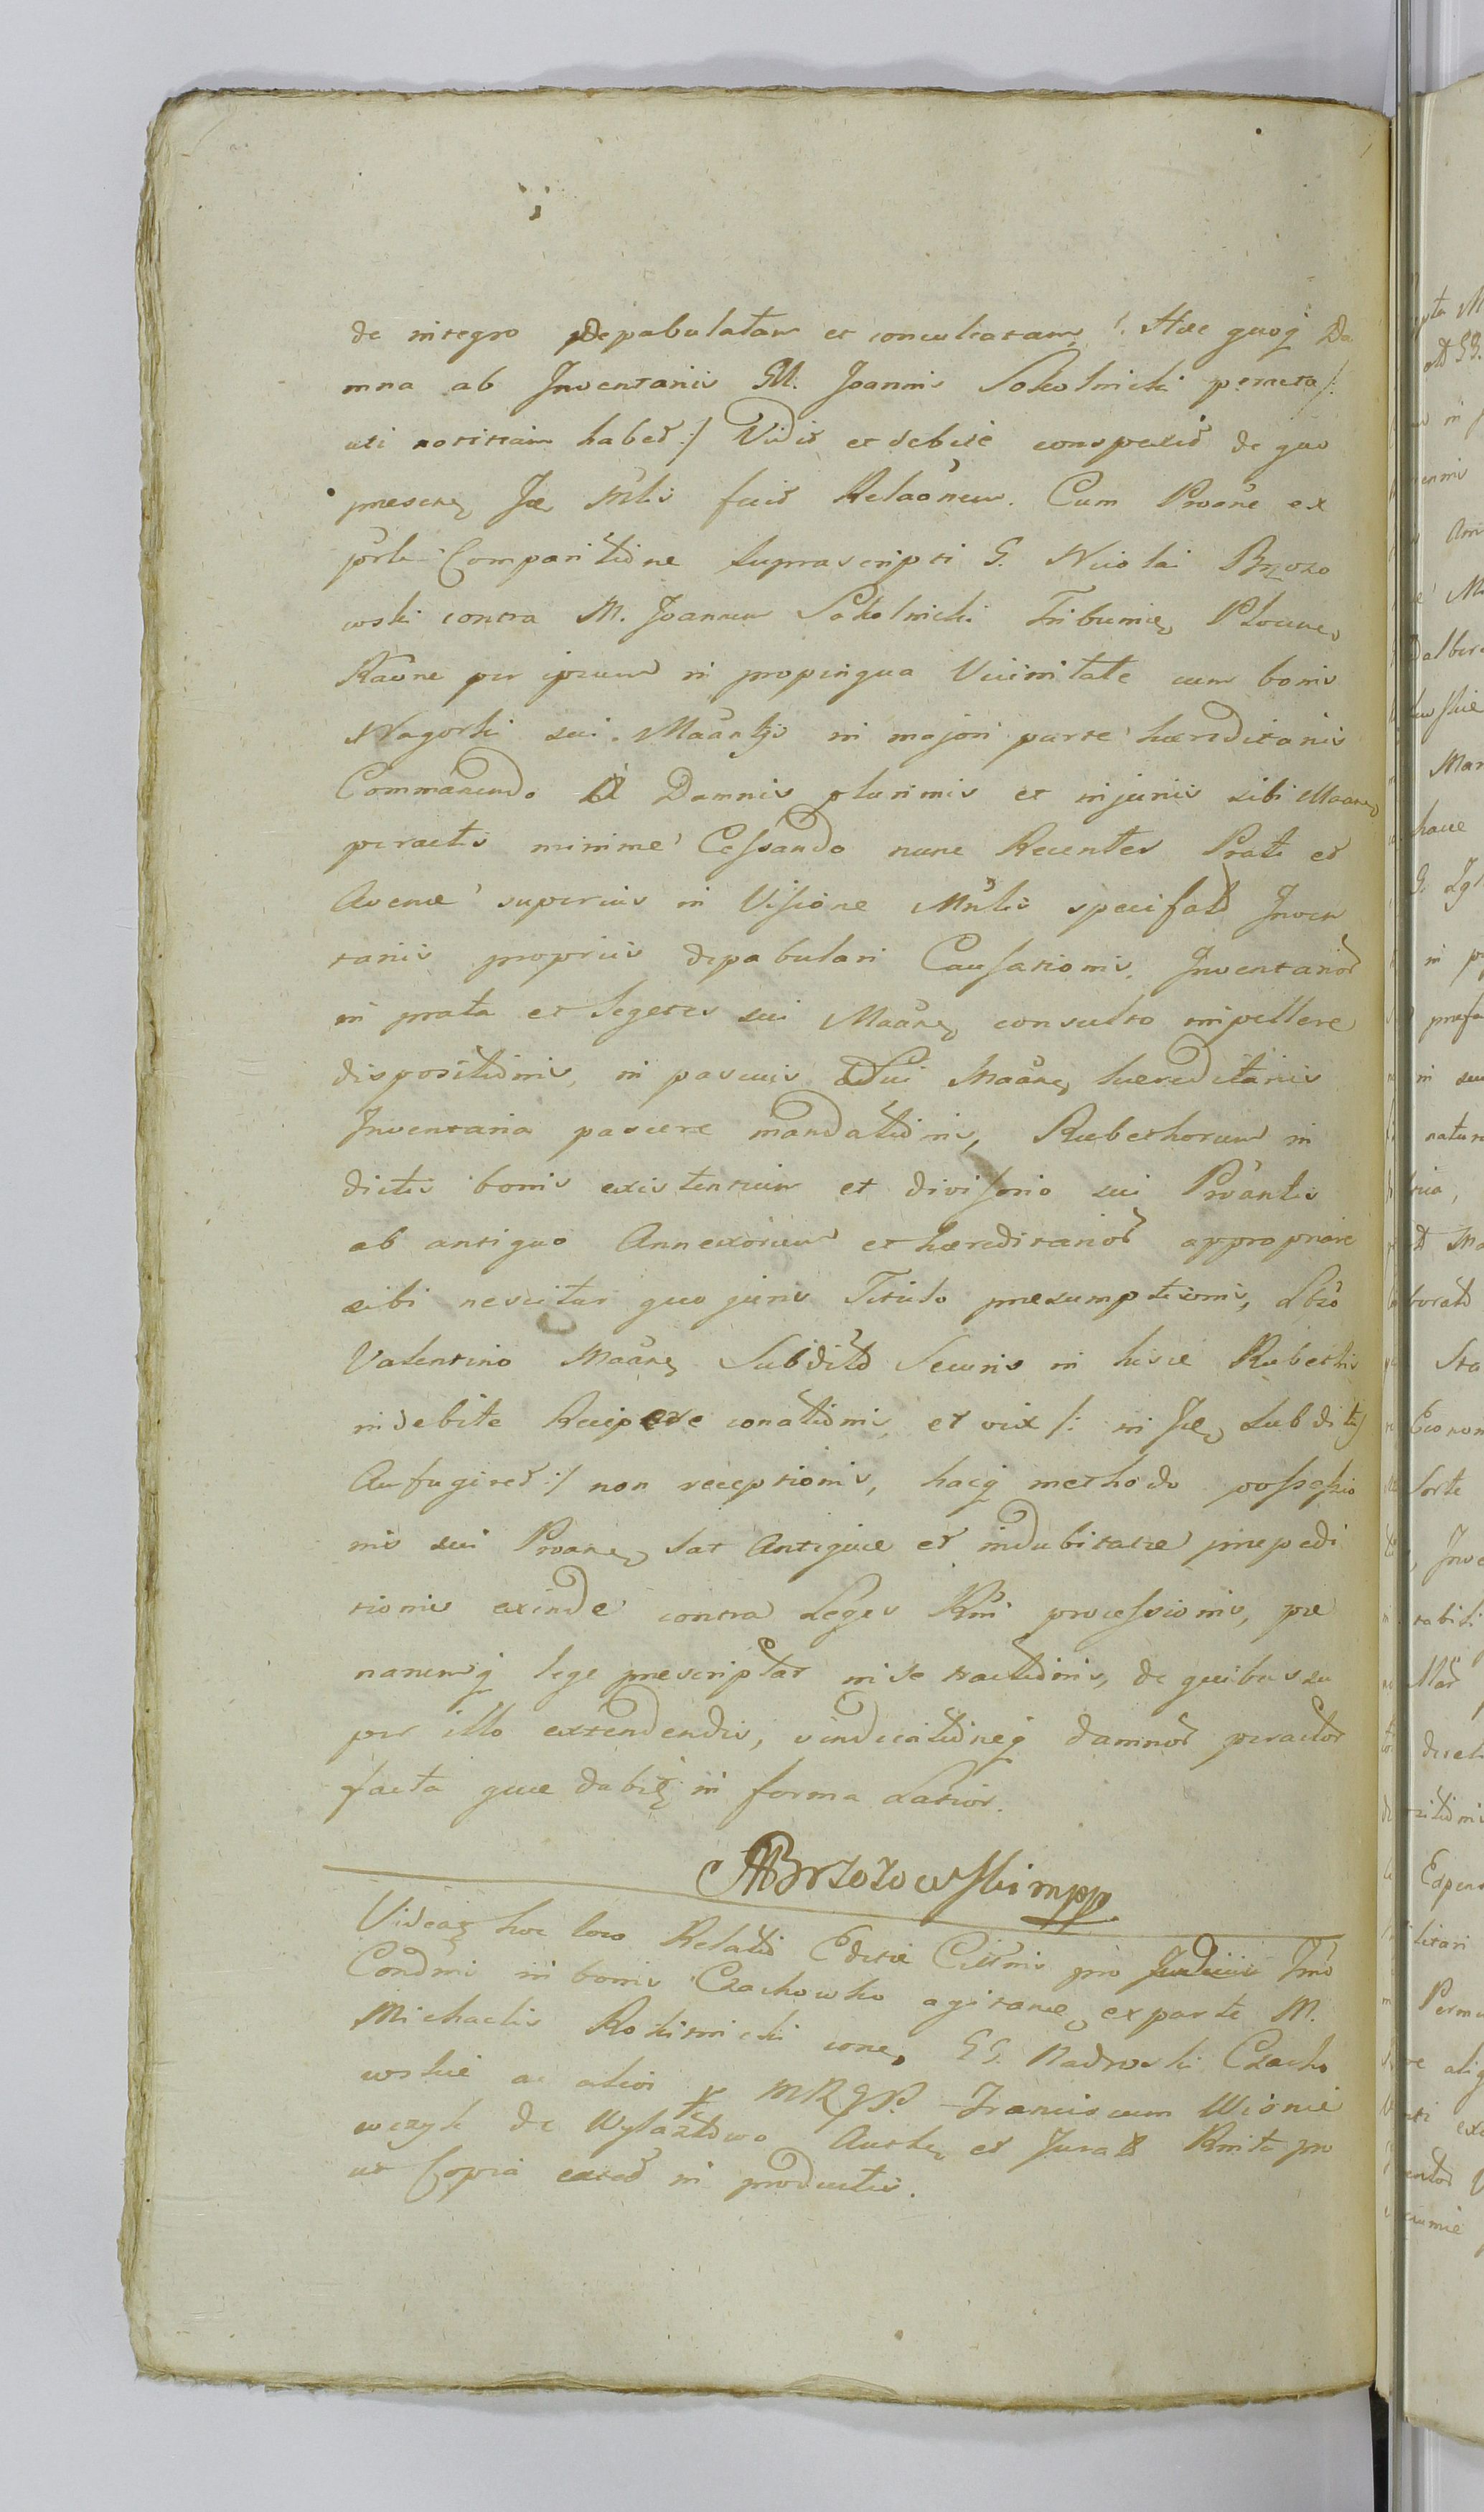 de integro Depabulatam et conculcatam /. Hæc quoq Da
mna ab Inventariis M. Joannis Sokolnicki peracta /:
uti notitiam habet :/ Vidit et debite conspexit de quo
presenq Fœ Mtlis fecit Relaõnem. Cum Proãne ex
psrli Comparitiõne suprascripti G. Nicolai Brzozo
wski contra M. Joannem Sokolnicki Tribunuq Plocenq
Raõne per ipsum in propinqua Vicinitate cum bonis
Nagorki sui Maãntis in majori parte hæreditariis
Commanendo A Damnis plurimis et injuriis sibi Maanq
peractis minime Cessando nunc Recenter Prati et
Avenæ superius in Visione Mnlis specifatt Inven
tariis propriis depabulari Causationis, Inventarior
in prata et segetes sui Maãnq consulto impellere
dispositionis, in pascuis Sui Maãnq hæreditariis
Inventaria pascere mandationis, Rubethorum in
dictis bonis existentium et divisorio sui Proãntis
ab antiquo Annexorum et hæreditarior appropriare
sibi nescitur quo juris Titulo præsumptionis, Lbso
Valentino Maãnq Subditto Securis in hisce Rubethis
indebite Recipere conationis, et vix /: ni Fœq subditq
Aufugiret :/ non receptionis, hacq methodo possessio
nis sui Proanq sat Antiquæ et indubitatæ præpedi
tionis exinde contra Leges Rni processionis, pæ
narumq lege prescriptar in se tractionis, de quibus su
per illo extendendis, vindicationeq damnor peractor
facta quæ dabitq in forma Latior.
ABrzozowski mpp
Videaq hoc loco Relatio Editæ Citõnis pro Judiciis Tmo
Condmi in bonis Czachowko agitanq ex parte M.
Michaelis Rokitnicki conq GG. Nadrowski Czacho
wskie ac alior p MRGP. Franciscum Wisnie
wczyk de Wylazlowo Authq et Jurat Rnita pro
ut Copia extat in productis.